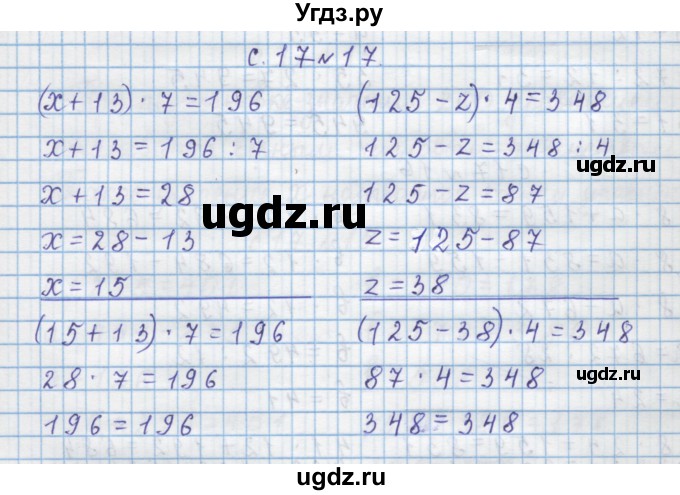 Угдз.ру
с. 17 № 17.
(x + 13) · 7 = 196
x + 13 = 196 : 7
x + 13 = 28
x = 28 - 13
x = 15
(15 + 13) · 7 = 196
28 · 7 = 196
196 = 196
(125 - z) · 4 = 348
125 - z = 348 : 4
125 - z = 87
z = 125 - 87
z = 38
(125 - 38) · 4 = 348
87 · 4 = 348
348 = 348
ugdz.ru
ugdz.ru
ugdz.ru
ugdz.ru
ugdz.ru
ugdz.ru
ugdz.ru